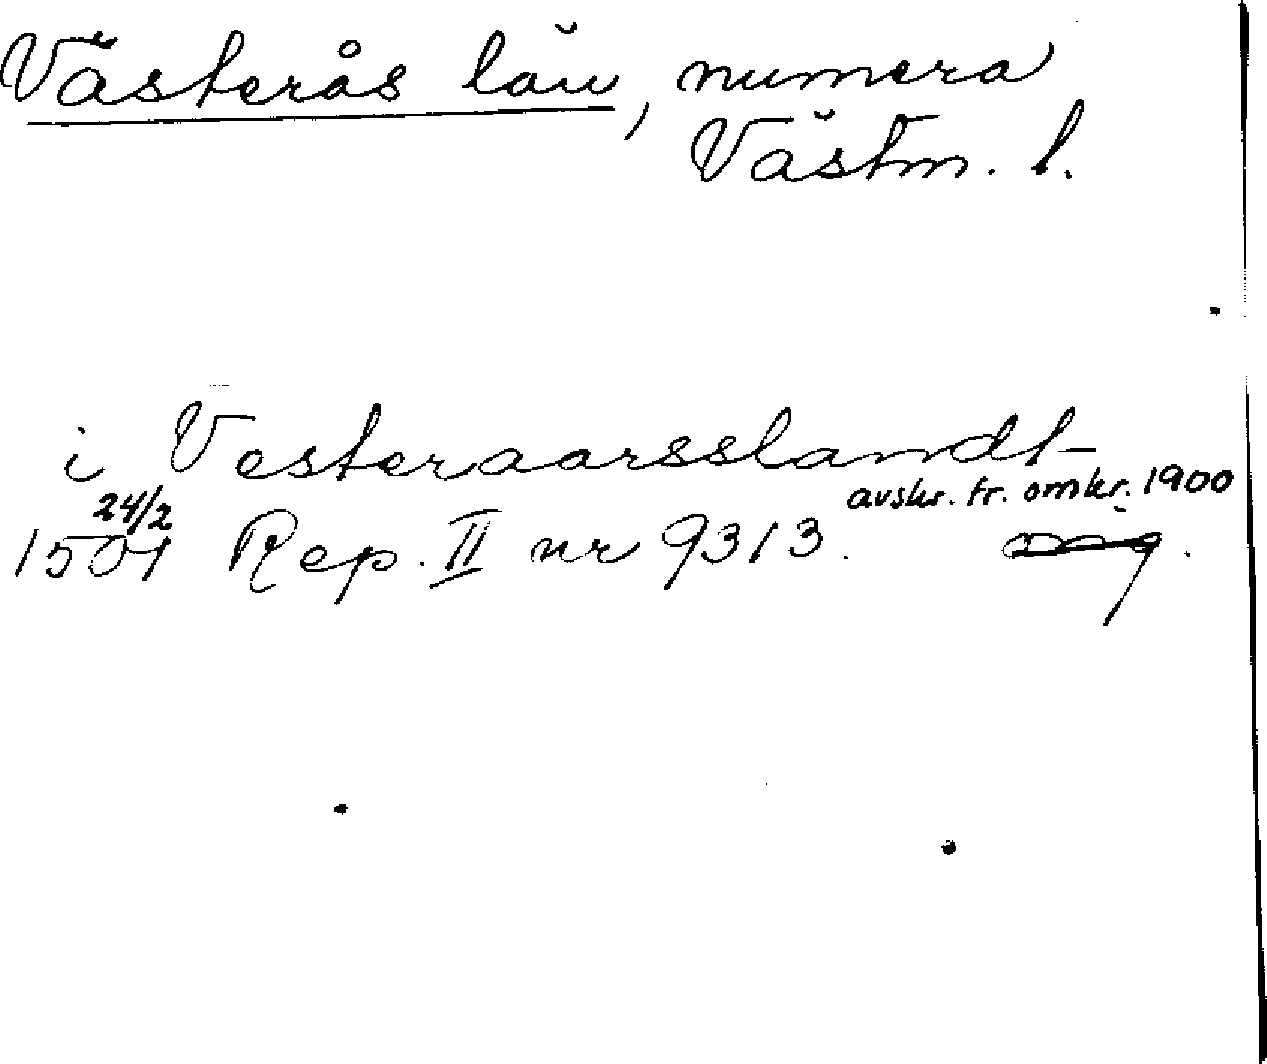 Västerås län, numera
Västm. l.
i Vesteraarsslandt
avskr. fr. omkr. 1900
24/2
1501 Rep. II nr 9313.